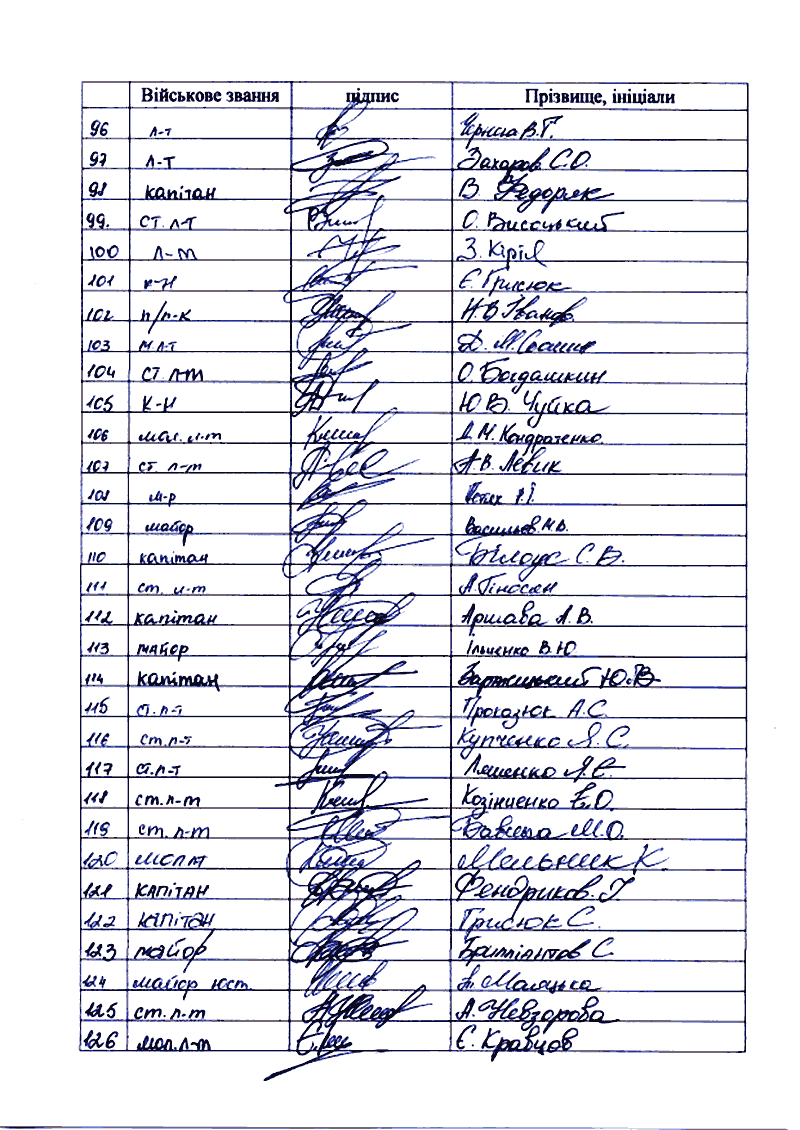 Військове звання підпис Прізвище, ініціали
96 л-т
97 л-т Захаров С.О.
98 капітан В. Федоряк
99. ст. л-т О. Висоцький
100 л-т З. Кірія
101 к-н Є. Грисюк
102 п/п-к Н.В Іванов
103 м л-т Д. М.
104 ст. л-т О. Богдашкин
105 к-н Ю В. Чуйка
106 мол. л-т Д. М. Кондратенко
107 ст. л-т А.В. Левик
108 м-р
109 майор Васильєв. М.В.
110 капітан Білоус С.В.
111 ст. л-т
112 капітан Аршава А.В.
113 майор Ільченко В.Ю
114 капітан Заржицький Ю.В
115 ст.л-т Проказюк А.С.
116 ст.л-т Купченко Я.С.
117 ст.л-т Ляшенко Я.Є.
118 ст.л-т Козінченко Є.О.
119 ст. л-т М.О.
120 мол лт Мельник К.
121 капітан Фендриков. Г.
122 капітан Грисюк С.
123 майор Бриліантов С.
124 майор юст. Маляцька
125 ст. л-т А. Невзорова
126 мол.л-т Є. Кравцов